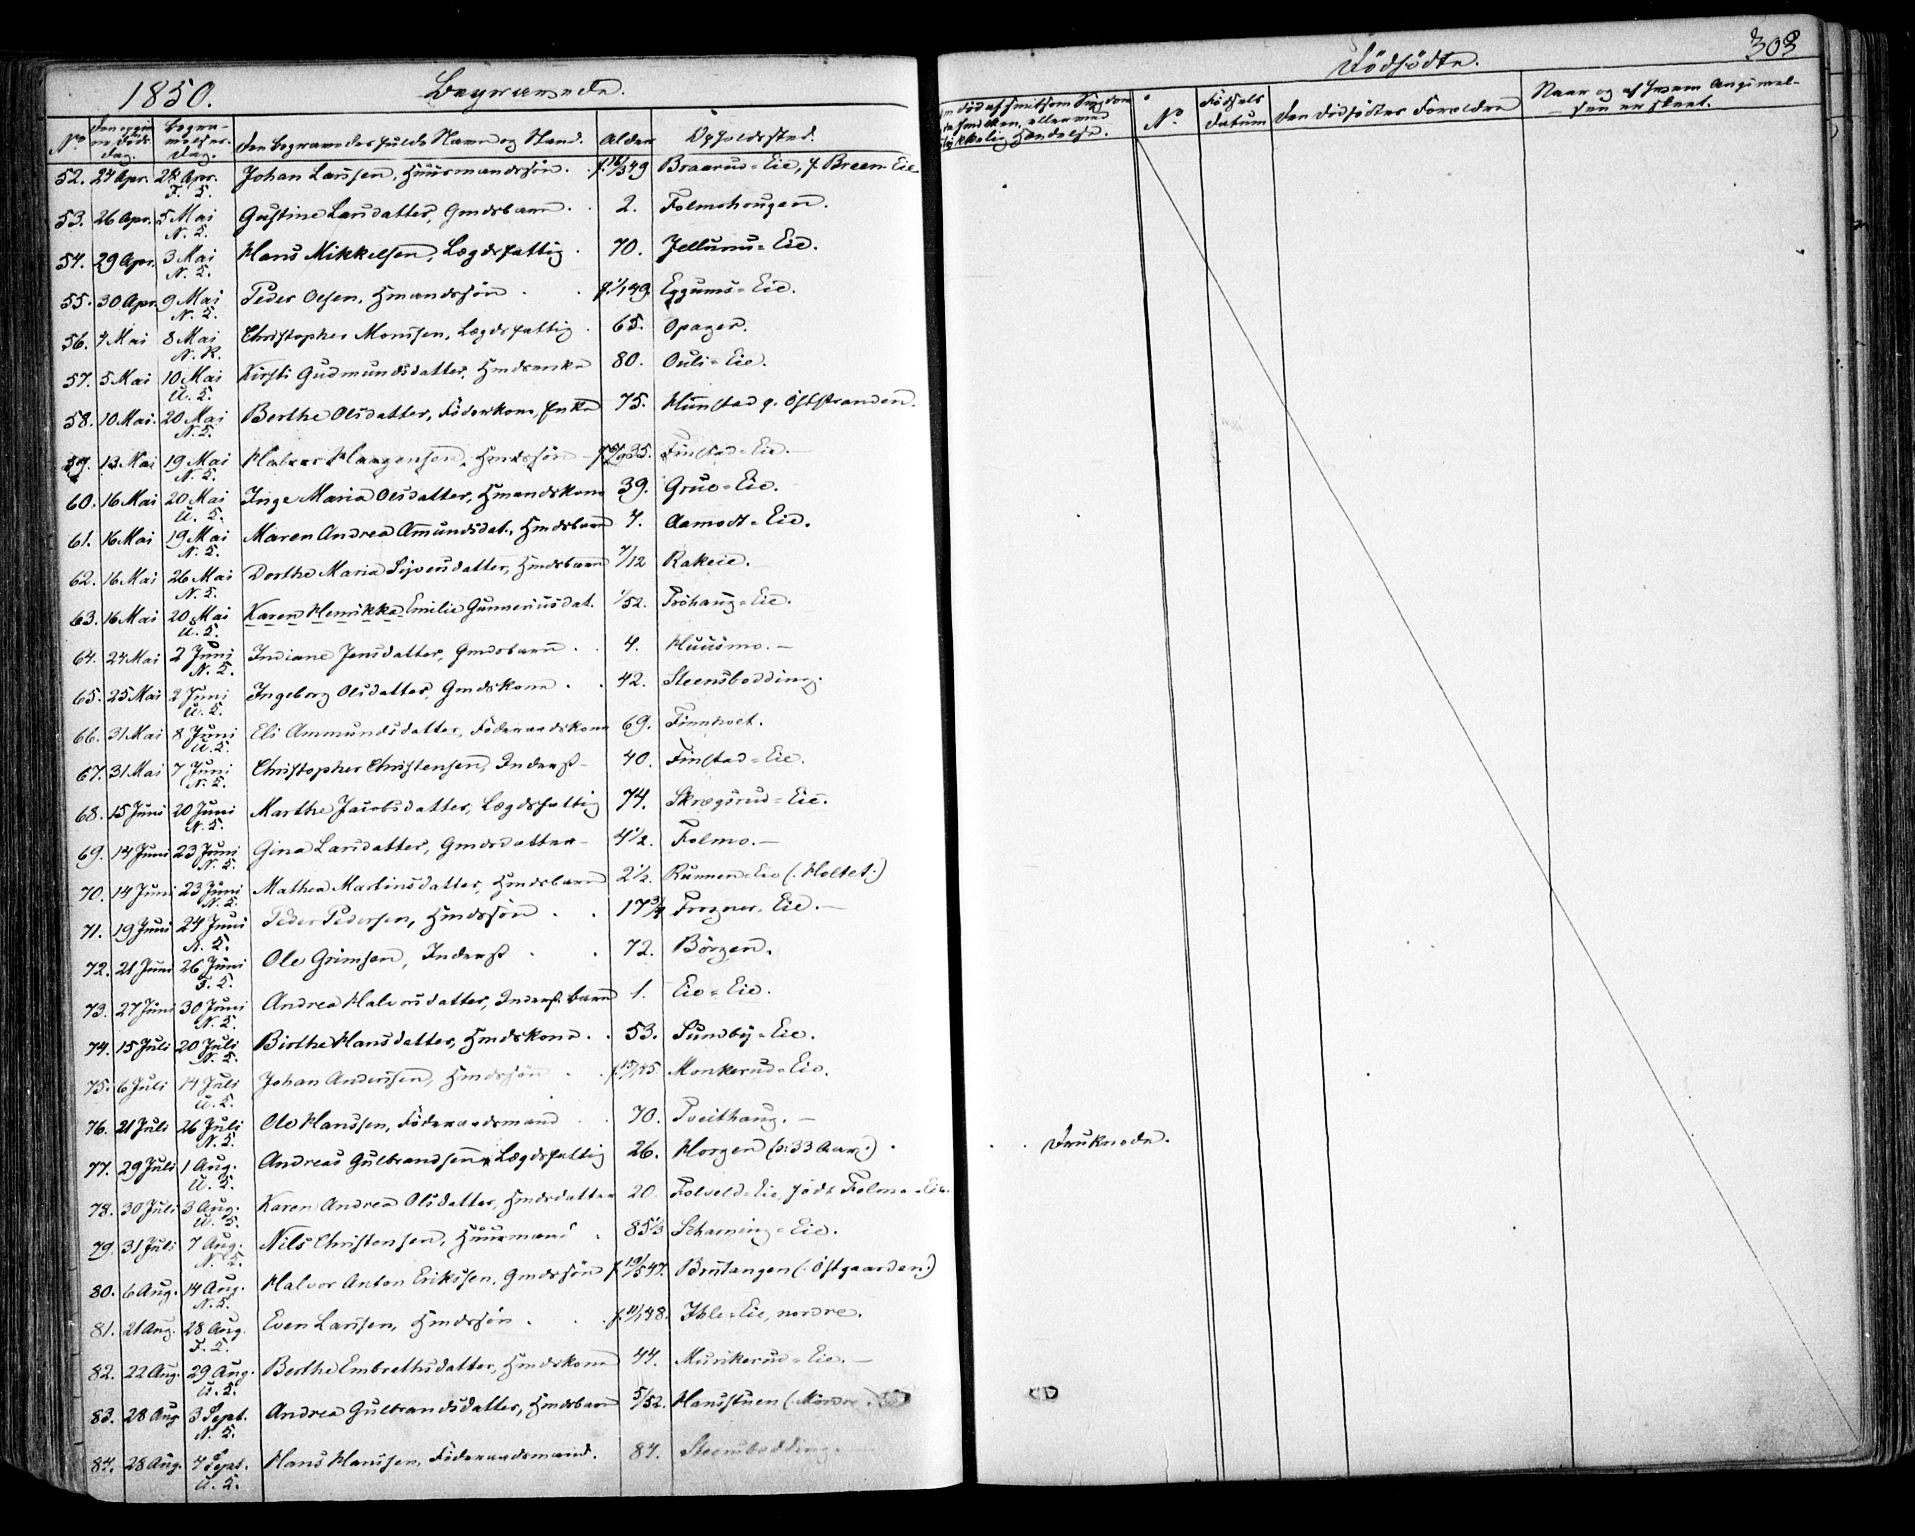 1850. Begravede.
No. Den Begravedes fulde Navn og Stand. Alder Opholdssted.
52. 24 Apr. 28 Apr. Johan Larsen, Huusmandssøn. f. 16/3 49 Braarud-Eie, f. Breen-Eie
F. K.
53. 26 Apr. 5 Mai Gustine Larsdatter, Gmdsbarn. 2. Folmohougen.
N. K.
54. 29 Apr. 3 Mai Hans Mikkelsen, Lægdsfattig. 70. Jellums-Eie.
N. K.
55. 30 Apr. 9 Mai Peder Olsen, Hmandssøn. f. 1/1 49. Eggums-Eie.
N. K.
56. 4 Mai 8 Mai Christopher Monssen, Lægdsfattig. 65. Opager.
N. K.
57. 5 Mai 10 Mai Kirsti Gudmundsdatter, Hmdsenke 80. Ouli-Eie.
U. K.
58. 10 Mai. 20 Mai Berthe Olsdatter, Föderkone, Enke 75. Hunstad p. Öststranden.
N. K.
59. 13 Mai 19 Mai Halvor Haagensen, Hmdssøn 35. Finstad-Eie.
N. K.
60. 16 Mai 20 Mai Inge Maria Olsdatter, Hmandskone 39. Grue-Eie.
U. K.
61. 16 Mai 19 Mai Maren Andrea Amundsdat., Hmdsbarn 7. Aamodt-Eie.
N. K.
62. 16 Mai 26 Mai Dorthe Maria Siversdatter, Hmdsbarn 7/12 Rakeie.
N. K.
63. 16 Mai 20 Mai Karen Henrikka Emilie Gunneriusdat. 1/52. Tröhaug-Eie.
U. K.
64. 24 Mai 2 Juni Indiane Jensdatter, Gmdsbarn. 4. Huusmo.
N. K.
65. 25 Mai 2 Juni Ingeborg Olsdatter, Gmdskone. 42. Steensbodding.
U. K.
66. 31 Mai 8 Juni Eli Ammundsdatter, Föderaadskone 69. Finnholt.
U. K.
67. 31 Mai 7 Juni Christopher Christensen, Inderst 40. Finstad-Eie.
N. K.
68. 15 Juni 20 Juni Marthe Jacobsdatter, Lægdsfattig 74. Skrægsrud-Eie.
N. K.
69. 14 Juni 23 Juni Gina Larsdatter, Gmdsdatter 4 1/2. Folmo.
N. K.
70. 14 Juni 23 Juni Mathea Martinsdatter, Hmdsbarn 2 1/2. Runnen-Eie (: Holtet :)
N. K.
71. 19 Juni 24 Juni Peder Pedersen, Hmdssøn. 17 3/4 Frogner-Eie.
N. K.
72. 21 Juni 26 Juni Ole Grimsen, Inderst 72. Börgen.
F. K.
73. 27 Juni 30 Juni Andrea Halvorsdatter, Inderst.barn 1. Eie-Eie.
N. K.
74. 15 Juli 20 Juli Birthe Hansdatter, Hmdskone. 53. Sundby-Eie.
N. K.
75. 6 Juli 14 Juli Johan Andersen, Hmdssøn f. 15/1 45. Monkerud-Eie.
U. K.
76. 21 Juli 26 Juli Ole Hanssen, Föderaadsmand 70. Tveithaug.
N. K.
77. 29 Juli 1 Aug. Andreas Gulbrandsen, Lægdsfattig 26. Horgen (: 33 Aar :)
U. K.
78. 30 Juli 3 Aug. Karen Andrea Olsdatter, Hmdsdatter 20. Folveld-Eie, født Folmo-Eie.
U. K.
79. 31 Juli 7 Aug. Nils Christensen, Huusmand. 85 1/3 Scharning-Eie.
N. K.
80. 6 Aug. 14 Aug. Halvor Anton Erikssen, Gmdssøn f. 19/5 47. Brutangen (: Östgaarden :)
N. K.
81. 21 Aug. 28 Aug. Even Larssen, Hmdssøn. f. 11/1 48. Ihle-Eie, nordre.
F. K.
82. 22 Aug. 29 Aug. Berthe Embrethsdatter, Hmdskone 44. Munkerud-Eie.
U. K.
83. 28 Aug 3 Sept. Andrea Gulbrandsdatter, Hmdsbarn 5/52. Hansstuen (: Nordre
N. K.
84. 28 Aug. 4 Sept. Hans Hanssen, Föderaadsmand. 84. Steensbodding.
U. K.
Dödfödte. 303
No. Födsels Datum Den dödfödtes Forældre Naar og af hvem Anmeldelsen er skeet.
Druknede.